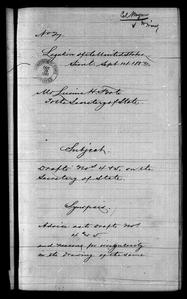 No 27
Legation of the United States
Sept 14 1882
Mr Lucius H. Foote
To the Secretary of State.
Subject.
Drafts Nos 4 & 5, on the
Secretary of State.
Synopsis
Advice as to Drafts Nos
4 & 5
and reasons for irregularity
in the drawing of the same